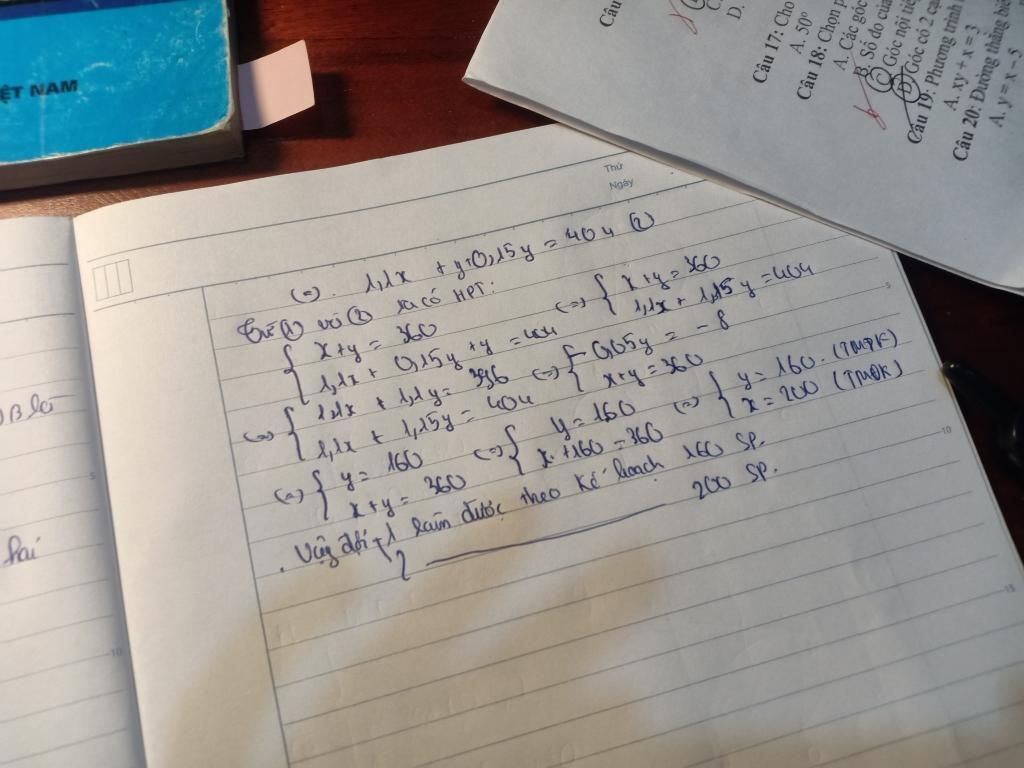 ỆT NAM
Câu
D.
Câu 17: Cho
A. 50°
Câu 18: Chọn p
A. Các góc
B. Số đo của
C. Góc nội tiế
D. Góc có 2 cạ
Câu 19: Phương trình
A. xy + x = 3
Câu 20: Đường thẳng biể
A. y = x - 5
Thứ
Ngày
(=) 1,1x + y + 0,15y = 404 (2)
Từ (1) và (2) ta có HPT:
{ x+y = 360
1,1x + 0,15y + y = 404
(=) { x+y = 360
1,1x + 1,15y = 404
(=) { 1,1x + 1,1y = 396
1,1x + 1,15y = 404
(=) { -0,05y = -8
x+y = 360
(=) { y = 160
x+y = 360
(=) { y = 160
x+160 = 360
(=) { y = 160 (TMĐK)
x = 200 (TMĐK)
. Vậy đội 1 làm được theo kế hoạch 160 SP.
2 200 SP.
hai
5
10
5
10
15